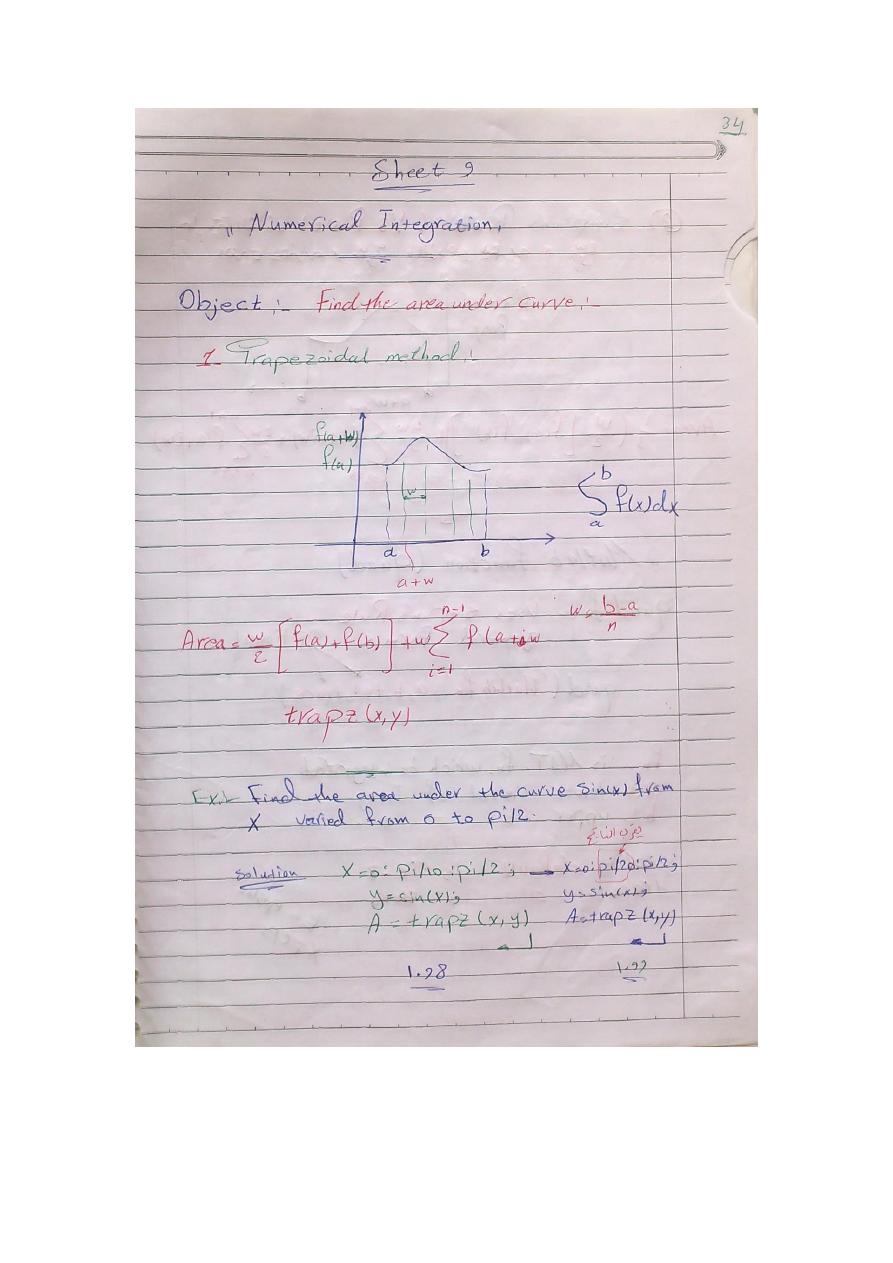 34
Sheet 9
" Numerical Integration,
Object :- Find the area under curve :-
1- Trapezoidal method :-
f(a+w)
f(a)
w
a b
a+w
b
∫ f(x)dx
a
Area = w/2 [f(a)+f(b)] + w n-1 ∑ i=1 f(a+iw w = b-a/n
trapz(x,y)
Ex:- Find the area under the curve sin(x) from
X varied from 0 to pi/2.
يقرب الناتج
Solution X=0:pi/10:pi/2; → X=0:pi/20:pi/2;
y=sin(x); y=sin(x);
A=trapz(x,y) A=trapz(x,y)